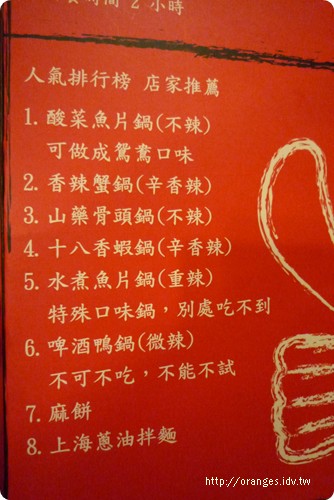 時間 2 小時
人氣排行榜 店家推薦
1. 酸菜魚片鍋(不辣)
可做成鴛鴦口味
2. 香辣蟹鍋(辛香辣)
3. 山藥骨頭鍋(不辣)
4. 十八香蝦鍋(辛香辣)
5. 水煮魚片鍋(重辣)
特殊口味鍋，別處吃不到
6. 啤酒鴨鍋(微辣)
不可不吃，不能不試
7. 麻餅
8. 上海蔥油拌麵
http://oranges.idv.tw